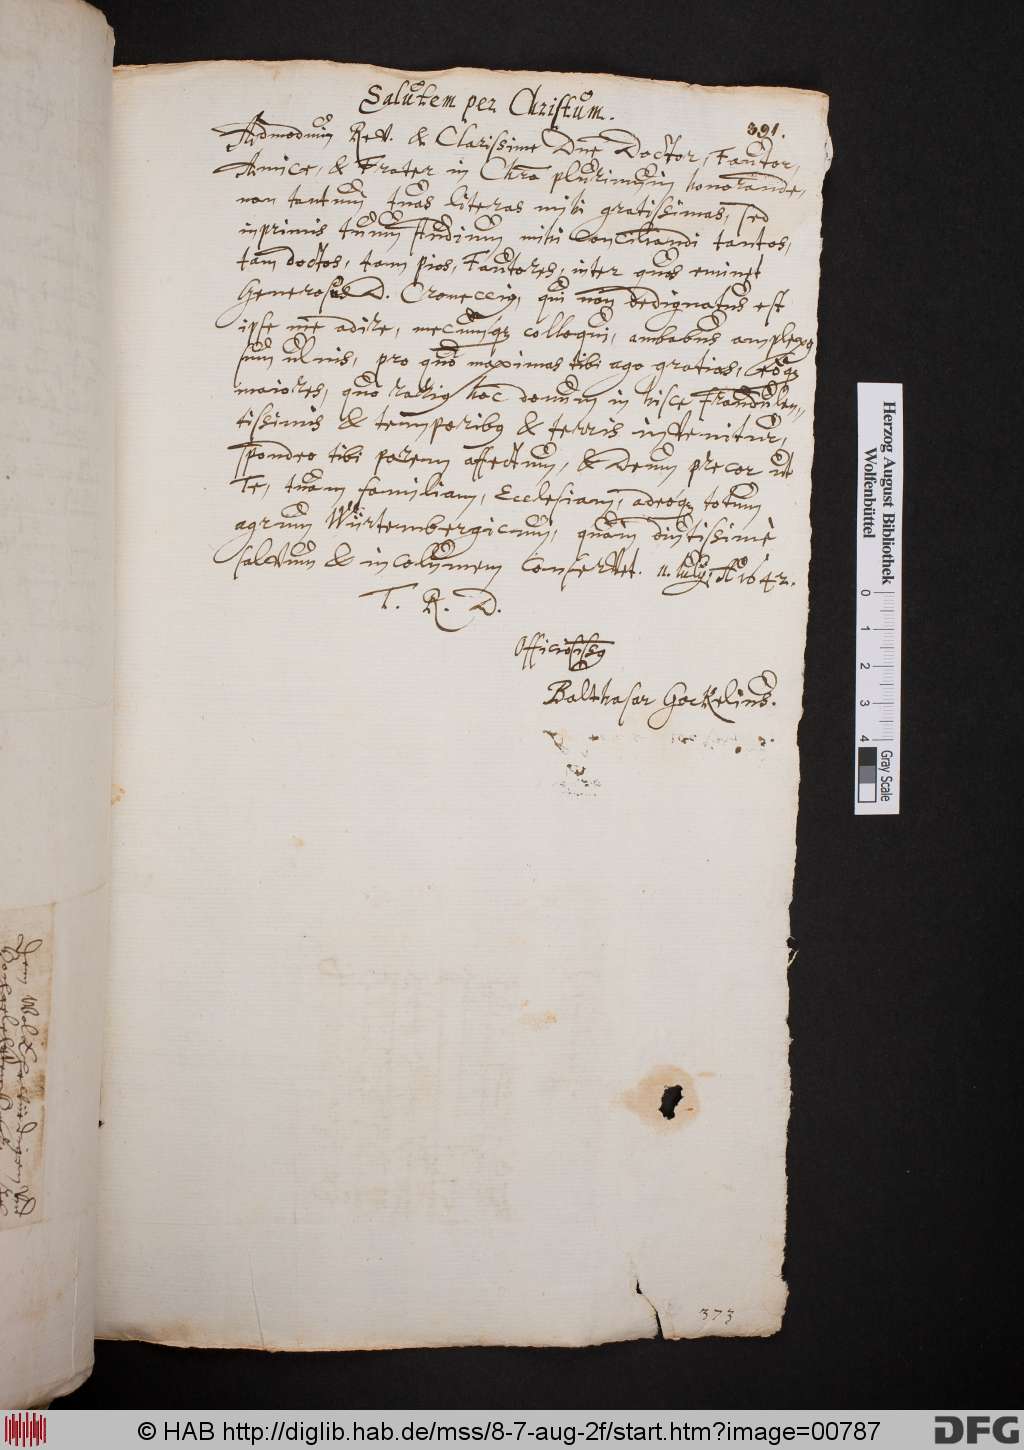 Salutem per Christum.
391.
Admodum Rev. & Clarissime Dne Doctor, Fautor,
Amice, & Frater in Chro plurimum honorande,
non tantum tuas literas mihi gratissimas, sed
inprimis tuum studium mihi conciliandi tantos,
tam doctos, tam pios, Fautores, inter quos eminet
Generosus D. qui non dedignatus est
ipse me adire, mecumq; colloqui, ambabus amplexus
sum ulnis, pro quo maximas tibi ago gratias, eoq;
maiores, quo rarius hoc donum in hisce fraudulen-
tissimis & temporibus & terris invenitur,
spondeo tibi parem affectum, & Deum precor ut
Te, tuam familiam, Ecclesiam, adeoq; totum
agrum Würtembergicum, quam diutissimè
salvum & incolumem conservet. 11. Julij Aº 1642.
T. R. D.
Officiosissg
Balthasar Gockelius.
373
Herzog August Bibliothek
Wolfenbüttel
0 1 2 3 4
Gray Scale
© HAB http://diglib.hab.de/mss/8-7-aug-2f/start.htm?image=00787
DFG